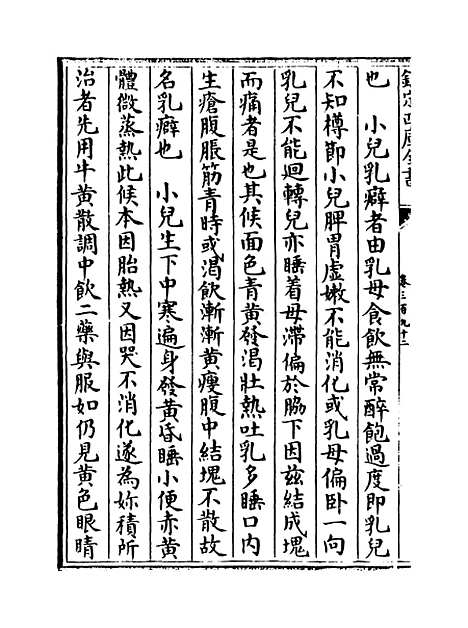 欽定四庫全書
卷三百九十二
也　小兒乳癖者由乳母食飲無常醉飽過度即乳兒
不知樽節小兒脾胃虛嫩不能消化或乳母偏卧一向
乳兒不能廻轉兒亦睡着母滯偏於脇下因兹結成塊
而痛者是也其候面色青黄發渴壯熱吐乳多睡口内
生瘡腹脹筋青時或渴飲漸漸黄瘦腹中結塊不散故
名乳癖也　小兒生下中寒遍身發黄昏睡小便亦黄
體微蒸熱此候本因胎熱又因哭不消化遂為妳積所
治者先用牛黄散調中飲二藥與服如仍見黄色眼睛